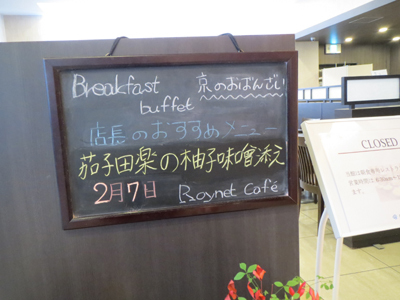 Breakfast 京のおばんざい
buffet
店長のおすすめメニュー
茄子田楽の柚子味噌添え
2月7日 Roynet Café
CLOSED